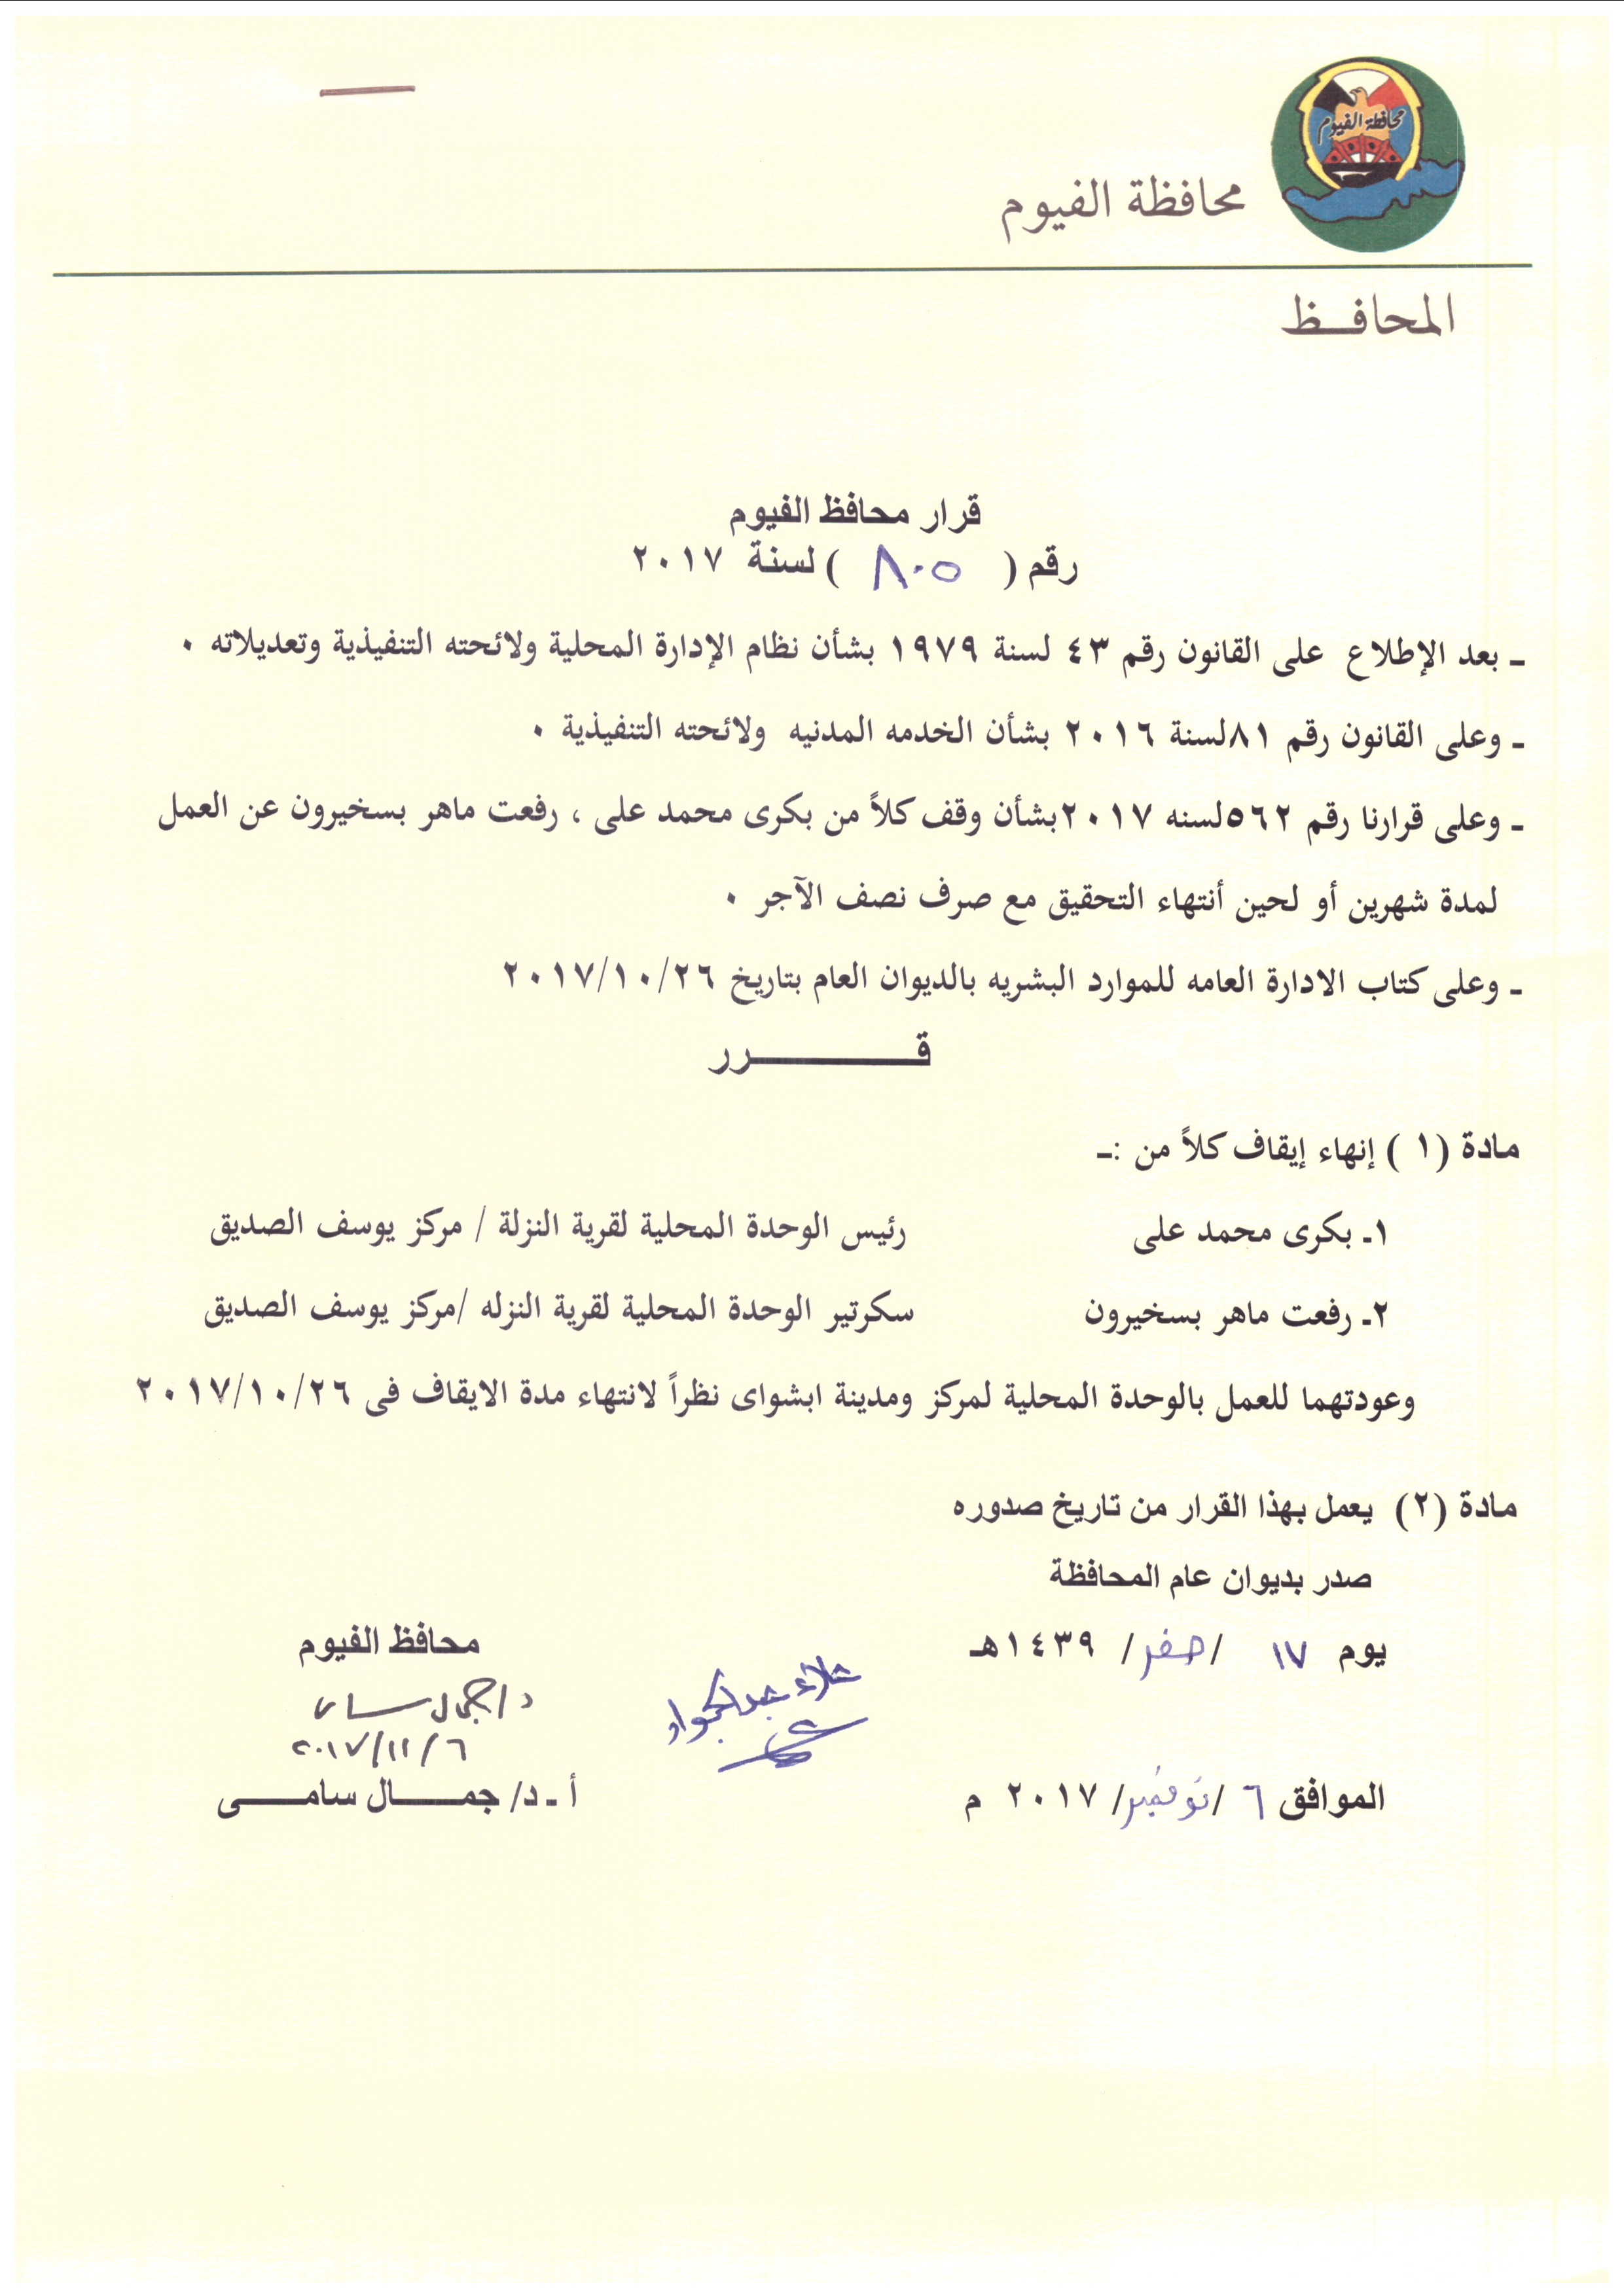 محافظة الفيوم
محافظة الفيوم
المحافـظ
قرار محافظ الفيوم
رقم ( ٨٠٥ ) لسنة ٢٠١٧
ـ بعد الإطلاع على القانون رقم ٤٣ لسنة ١٩٧٩ بشأن نظام الإدارة المحلية ولائحته التنفيذية وتعديلاته ٠
ـ وعلى القانون رقم ٨١لسنة ٢٠١٦ بشأن الخدمه المدنيه ولائحته التنفيذية ٠
ـ وعلى قرارنا رقم ٥٦٢لسنه ٢٠١٧بشأن وقف كلاً من بكرى محمد على ، رفعت ماهر بسخيرون عن العمل
لمدة شهرين أو لحين أنتهاء التحقيق مع صرف نصف الآجر ٠
ـ وعلى كتاب الادارة العامه للموارد البشريه بالديوان العام بتاريخ ٢٠١٧/١٠/٢٦
قـــــــــرر
مادة (١ ) إنهاء إيقاف كلاً من :ـ
١ـ بكرى محمد على رئيس الوحدة المحلية لقرية النزلة / مركز يوسف الصديق
٢ـ رفعت ماهر بسخيرون سكرتير الوحدة المحلية لقرية النزله /مركز يوسف الصديق
وعودتهما للعمل بالوحدة المحلية لمركز ومدينة ابشواى نظراً لانتهاء مدة الايقاف فى ٢٠١٧/١٠/٢٦
مادة (٢) يعمل بهذا القرار من تاريخ صدوره
صدر بديوان عام المحافظة
يوم ١٧ /صفر/ ١٤٣٩هـ
الموافق ٦ /نوفمبر/ ٢٠١٧ م
علاء عبدالجواد
محافظ الفيوم
د/جمال سامى
٢٠١٧/١١/٦
أ ـ د/ جمـــــال سامـــــى